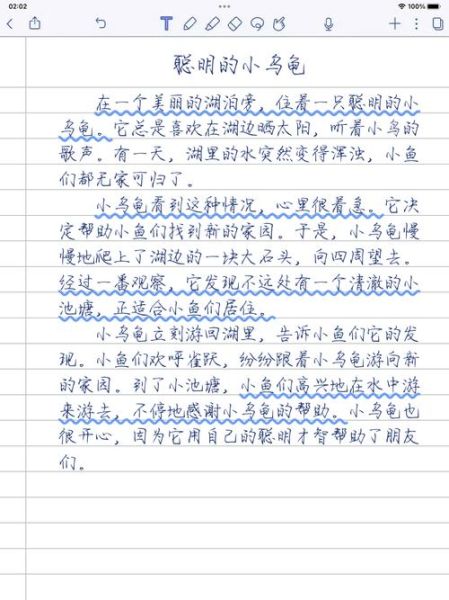 02:02
100%
聪明的小乌龟
在一个美丽的湖泊旁，住着一只聪明的小
乌龟。它总是喜欢在湖边晒太阳，听着小鸟的
歌声。有一天，湖里的水突然变得浑浊，小鱼
们都无家可归了。
小乌龟看到这种情况，心里很着急。它决
定帮助小鱼们找到新的家园。于是，小乌龟慢
慢地爬上了湖边的一块大石头，向四周望去。
经过一番观察，它发现不远处有一个清澈的小
池塘，正适合小鱼们居住。
小乌龟立刻游回湖里，告诉小鱼们它的发
现。小鱼们欢呼雀跃，纷纷跟着小乌龟游向新
的家园。到了小池塘，小鱼们高兴地在水中游
来游去，不停地感谢小乌龟的帮助。小乌龟也
很开心，因为它用自己的聪明才智帮助了朋友
们。